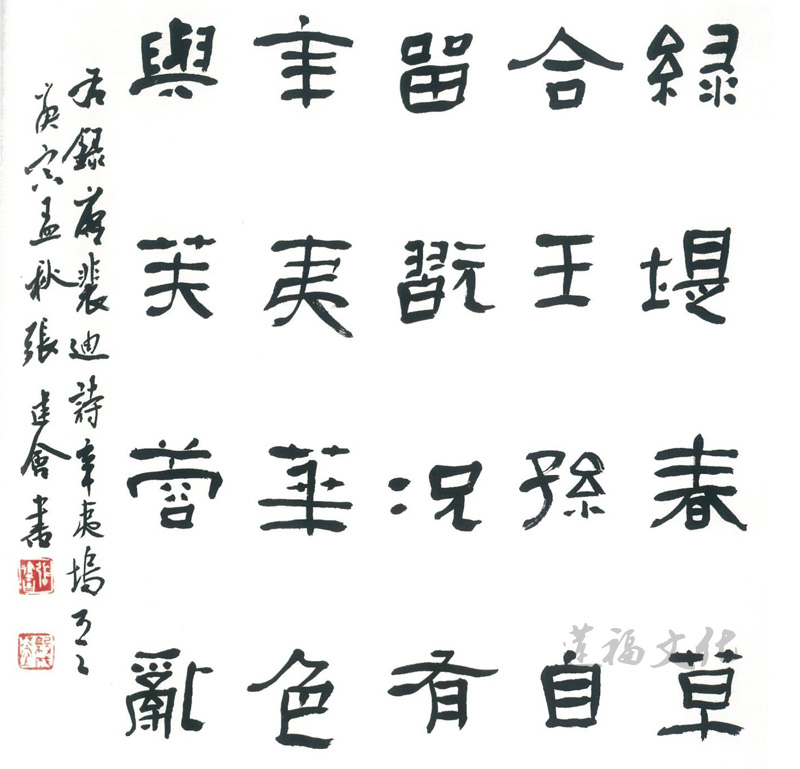 綠堤春草
合王孫自
留翫況有
辛夷華色
與芙蓉亂
右錄唐裴迪詩辛夷塢
庚寅孟秋張建會書
福文化